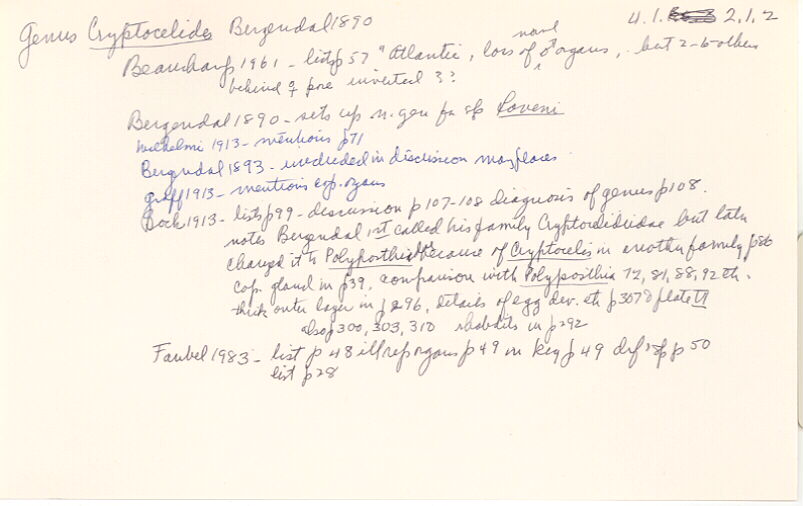 Genus Cryptocelides Bergendal 1890 4.1. 2.1.2
Beauchamp 1961 - lists p 57 "Atlantic, loss of ♂ organs, but 2-6 others
behind ♀ pore inverted ??
Bergendal 1890 - sets up n. gen for sp Loveni
Wilhelmi 1913 - mentions p 71
Bergendal 1893 - included in discussion many places
Graff 1913 - mentions cop. organs
Bock 1913 - lists p 99 - discussion p 107-108 diagnosis of genus p 108.
notes Bergendal 1st called his family Cryptocelididae but later
changed it to Polyposthiidae because of Cryptocelis in another family p 86
cop. gland in p 39, comparison with Polyposthia 72, 81, 88, 92 etc.
thick outer layer in p 296, details of egg dev. etc p 307 & plate VI
also p 300, 303, 310 rhabdits in p 292
Faubel 1983 - list p 48 ill rep organs p 49 in key p 49 def sp p 50
list p 28